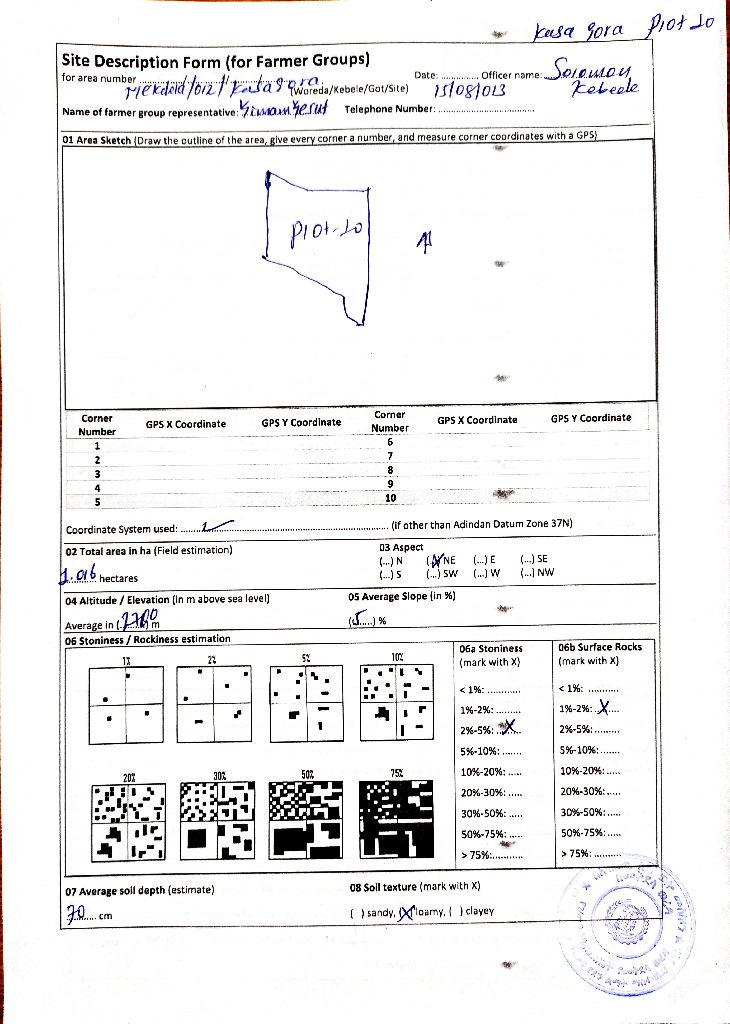 Kasa gora Plot-10
Site Description Form (for Farmer Groups)
for area number Mekdela/012/Kasa gora (Woreda/Kebele/Got/Site) Date: 15/08/013 Officer name: Solomon Kebede
Name of farmer group representative: Yimam Yesuf Telephone Number:
01 Area Sketch (Draw the outline of the area, give every corner a number, and measure corner coordinates with a GPS)
Plot-10
N
Corner Number GPS X Coordinate GPS Y Coordinate Corner Number GPS X Coordinate GPS Y Coordinate
1 6
2 7
3 8
4 9
5 10
Coordinate System used: (If other than Adindan Datum Zone 37N)
02 Total area in ha (Field estimation) 03 Aspect
1.016 hectares
(...) N (X) NE (...) E (...) SE
(...) S (...) SW (...) W (...) NW
04 Altitude / Elevation (in m above sea level) 05 Average Slope (in %)
Average in ( ) m (5) %
06 Stoniness / Rockiness estimation
1% 2% 5% 10%
20% 30% 50% 75%
06a Stoniness (mark with X)
< 1%: ...........
1%-2%: ........
2%-5%: ..X...
5%-10%: .......
10%-20%: .....
20%-30%: .....
30%-50%: .....
50%-75%: .....
> 75%:..........
06b Surface Rocks (mark with X)
< 1%: ..........
1%-2%: ..X....
2%-5%:........
5%-10%:.......
10%-20%:.....
20%-30%:.....
30%-50%:.....
50%-75%: .....
> 75%: .........
07 Average soil depth (estimate) 08 Soil texture (mark with X)
70 cm ( ) sandy, (X) loamy, ( ) clayey